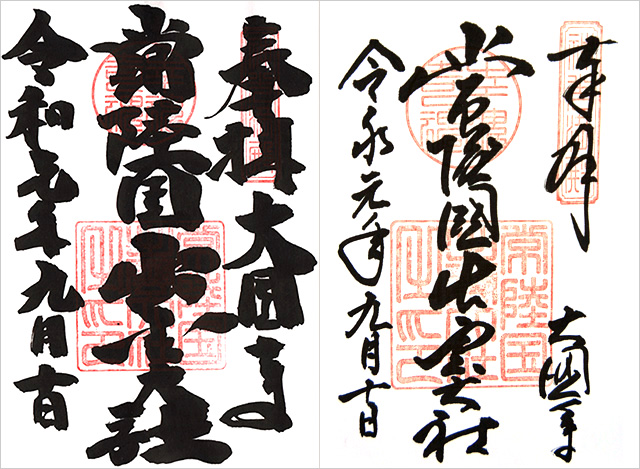 奉拝 大國
常陸國出雲大社
令和元年九月十日
常陸国
奉拝 大国
常陸国出雲大社
令和元年九月十日
常陸国